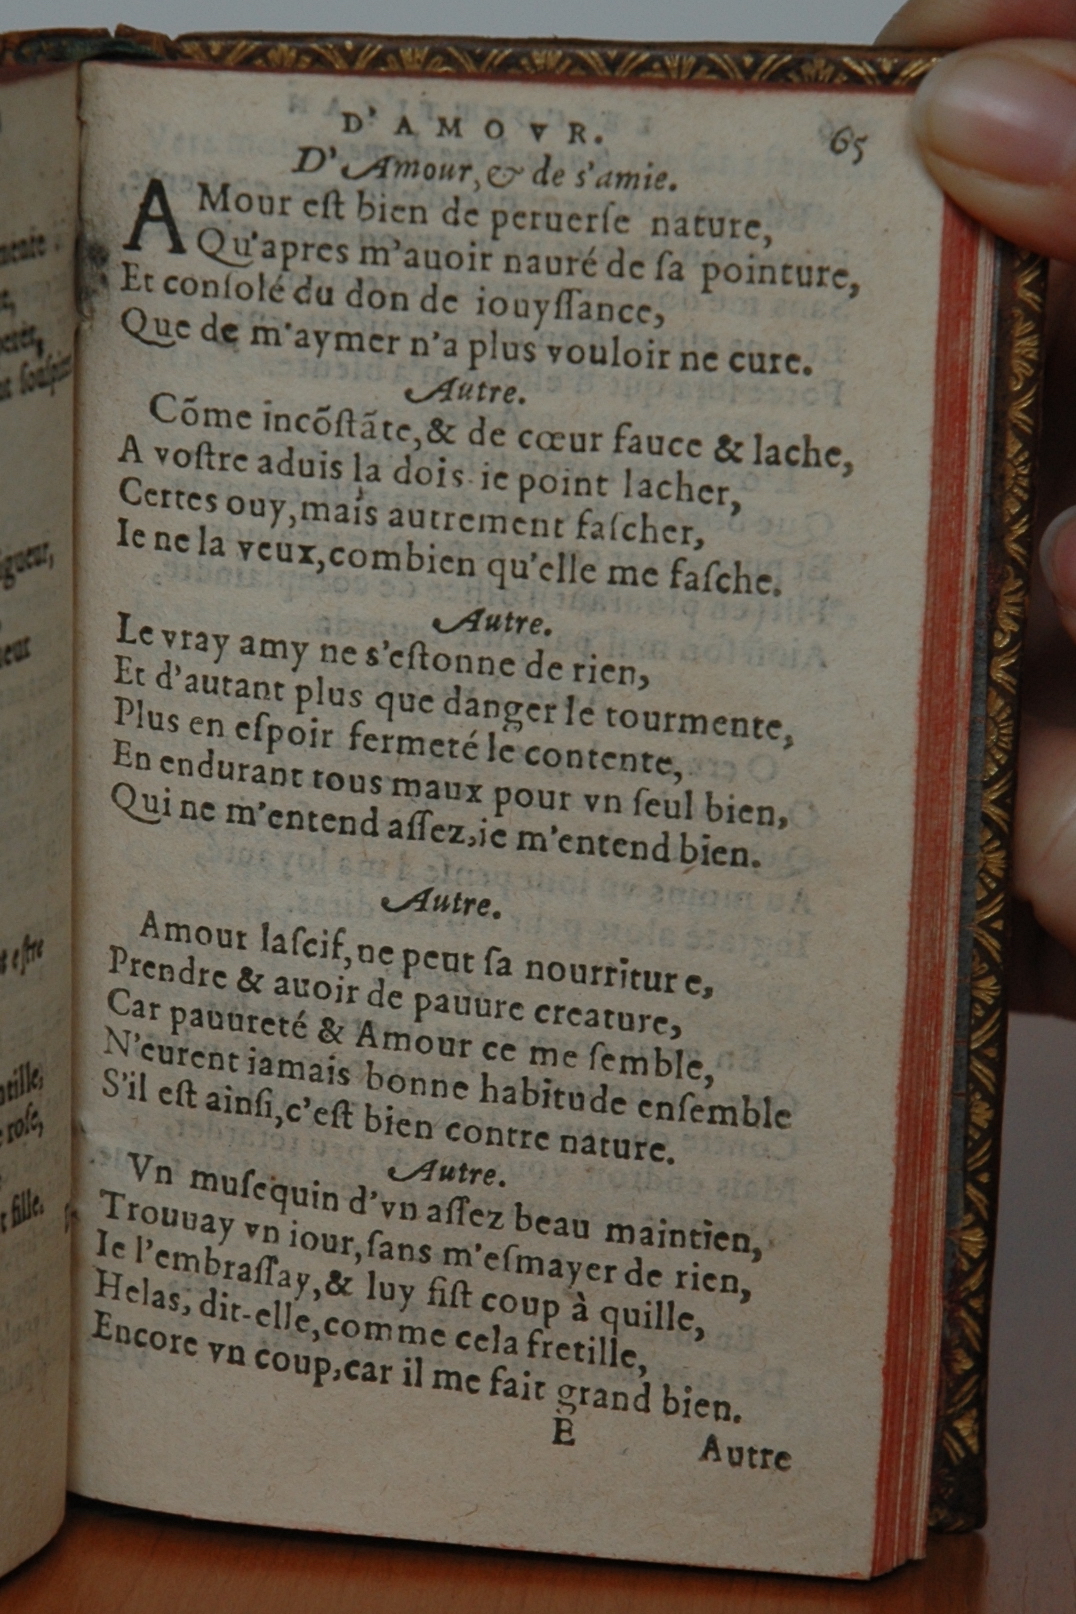 D'AMOVR. 65
D'Amour, & de s'amie.
AMour eſt bien de peruerſe nature,
Qu'apres m'auoir nauré de ſa pointure,
Et conſolé du don de iouyſſance,
Que de m'aymer n'a plus vouloir ne cure.
Autre.
Cõme incõſtãte, & de cœur fauce & lache,
A voſtre aduis la dois-ie point lacher,
Certes ouy, mais autrement faſcher,
Ie ne la veux, combien qu'elle me faſche.
Autre.
Le vray amy ne s'eſtonne de rien,
Et d'autant plus que danger le tourmente,
Plus en eſpoir fermeté le contente,
En endurant tous maux pour vn ſeul bien,
Qui ne m'entend aſſez, ie m'entend bien.
Autre.
Amour laſcif, ne peut ſa nourriture,
Prendre & auoir de pauure creature,
Car pauureté & Amour ce me ſemble,
N'eurent iamais bonne habitude enſemble
S'il eſt ainſi, c'eſt bien contre nature.
Autre.
Vn muſequin d'vn aſſez beau maintien,
Trouuay vn iour, ſans m'eſmayer de rien,
Ie l'embraſſay, & luy fiſt coup à quille,
Helas, dit-elle, comme cela fretille,
Encore vn coup, car il me fait grand bien.
E Autre